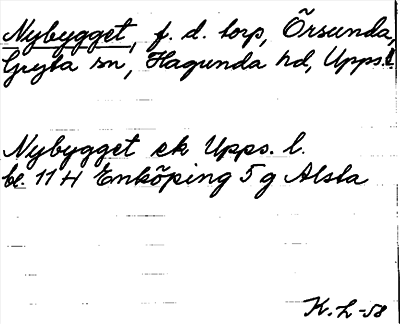 Nybygget, f. d. torp, Örsunda,
Gryta sn, Hagunda hd, Upps. l.
Nybygget ek Upps. l.
bl. 11 H Enköping 5 g Alsta
K. L -58